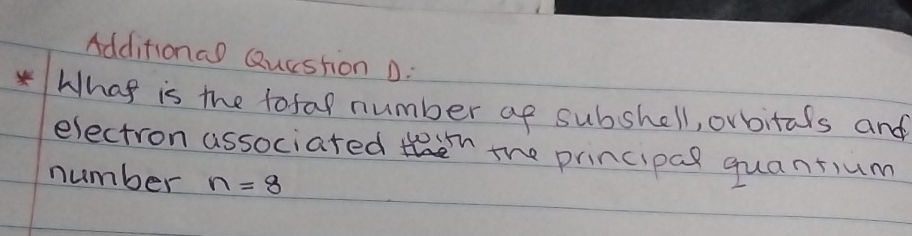 Additional Question D:
* What is the total number of subshell, orbitals and
electron associated with the principal quantium
number n = 8